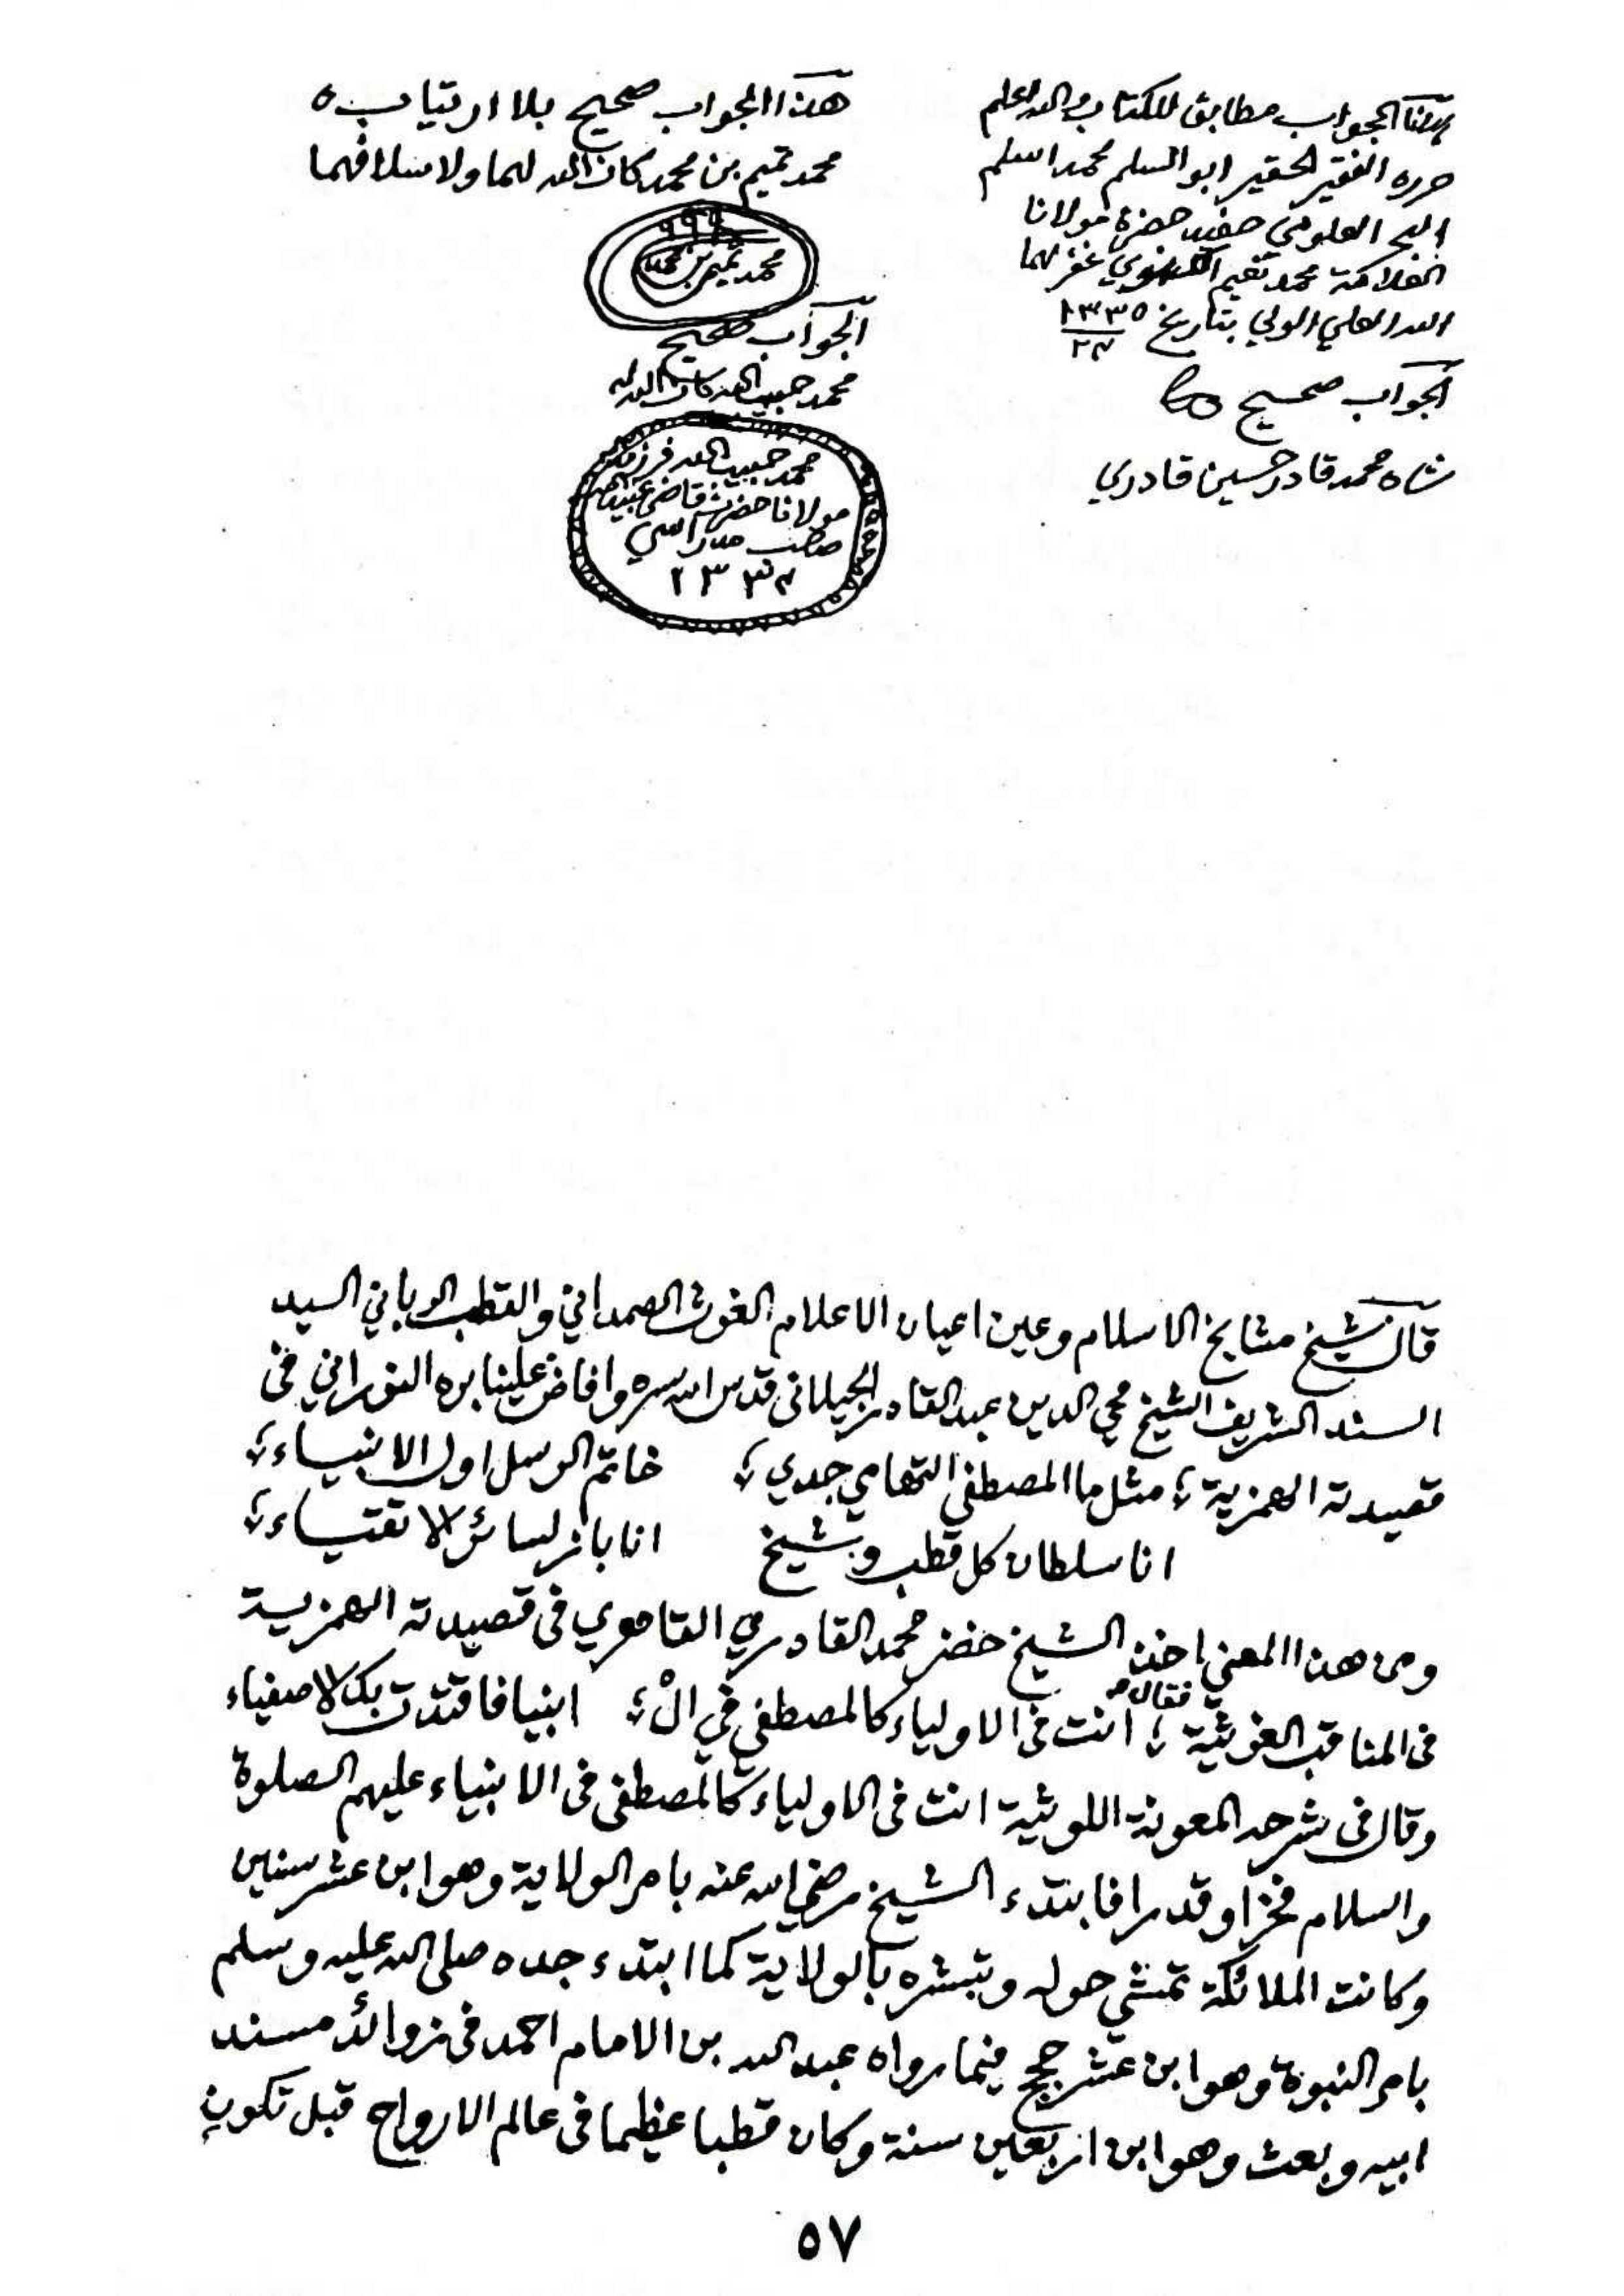 هذا الجواب مطابق للكتاب والله اعلم
حرره الفقير الحقير ابو السلم محمد اسلم
العلومي حفيد حضرة مولانا
العلامة محمد نعيم اللكنوي غفر لهما
الله العلي الولي بتاريخ ١٣٣٥
الجواب صحيح
شاه محمد قادر حسين قادري
هذا الجواب صحيح بلا ارتياب ه
محمد تميم بن محمد كان الله لهما ولاسلافهما
محمد تميم بن محمد
الجواب صحيح
محمد حبيب الله كان الله له
محمد حبيب الله فرزند
مولانا حضرت قاضي عبيد الله
صاحب مدراسي
١٣٣٤
قال شيخ مشايخ الاسلام وعين اعيان الاعلام الغوث الصمداني والقطب الرباني السيد
السند الشريف الشيخ محي الدين عبد القادر الجيلاني قدس الله سره وافاض علينا بره النوراني في
قصيدته الهمزية ؛ مثل ما المصطفى التهامي جدي ؛ خاتم الرسل اول الانبياء ؛
انا سلطان كل قطب وشيخ انا باز لسائر الاتقياء ؛
ومن هذا المعنى اخذ الشيخ خضر محمد القادري القاهري في قصيدته الهمزية
في المناقب الغوثية ؛ فقال انت في الاولياء كالمصطفى في الْ ؛ انبيا فاقتدت بك الاصفياء
وقال في شرحه المعونة اللوثية انت في الاولياء كالمصطفى في الانبياء عليهم الصلوة
والسلام فخرا وقدرا فابتدء الشيخ رضي الله عنه بامر الولاية وهو ابن عشر سنين
وكانت الملائكة تمشي حوله وتبشره بالولاية كما ابتدء جده صلى الله عليه وسلم
بامر النبوة وهو ابن عشر حجج فيما رواه عبد الله بن الامام احمد في زوائد مسند
ابيه وبعث وهو ابن اربعين سنة وكان قطبا عظيما في عالم الارواح قبل تكوين
٥٧